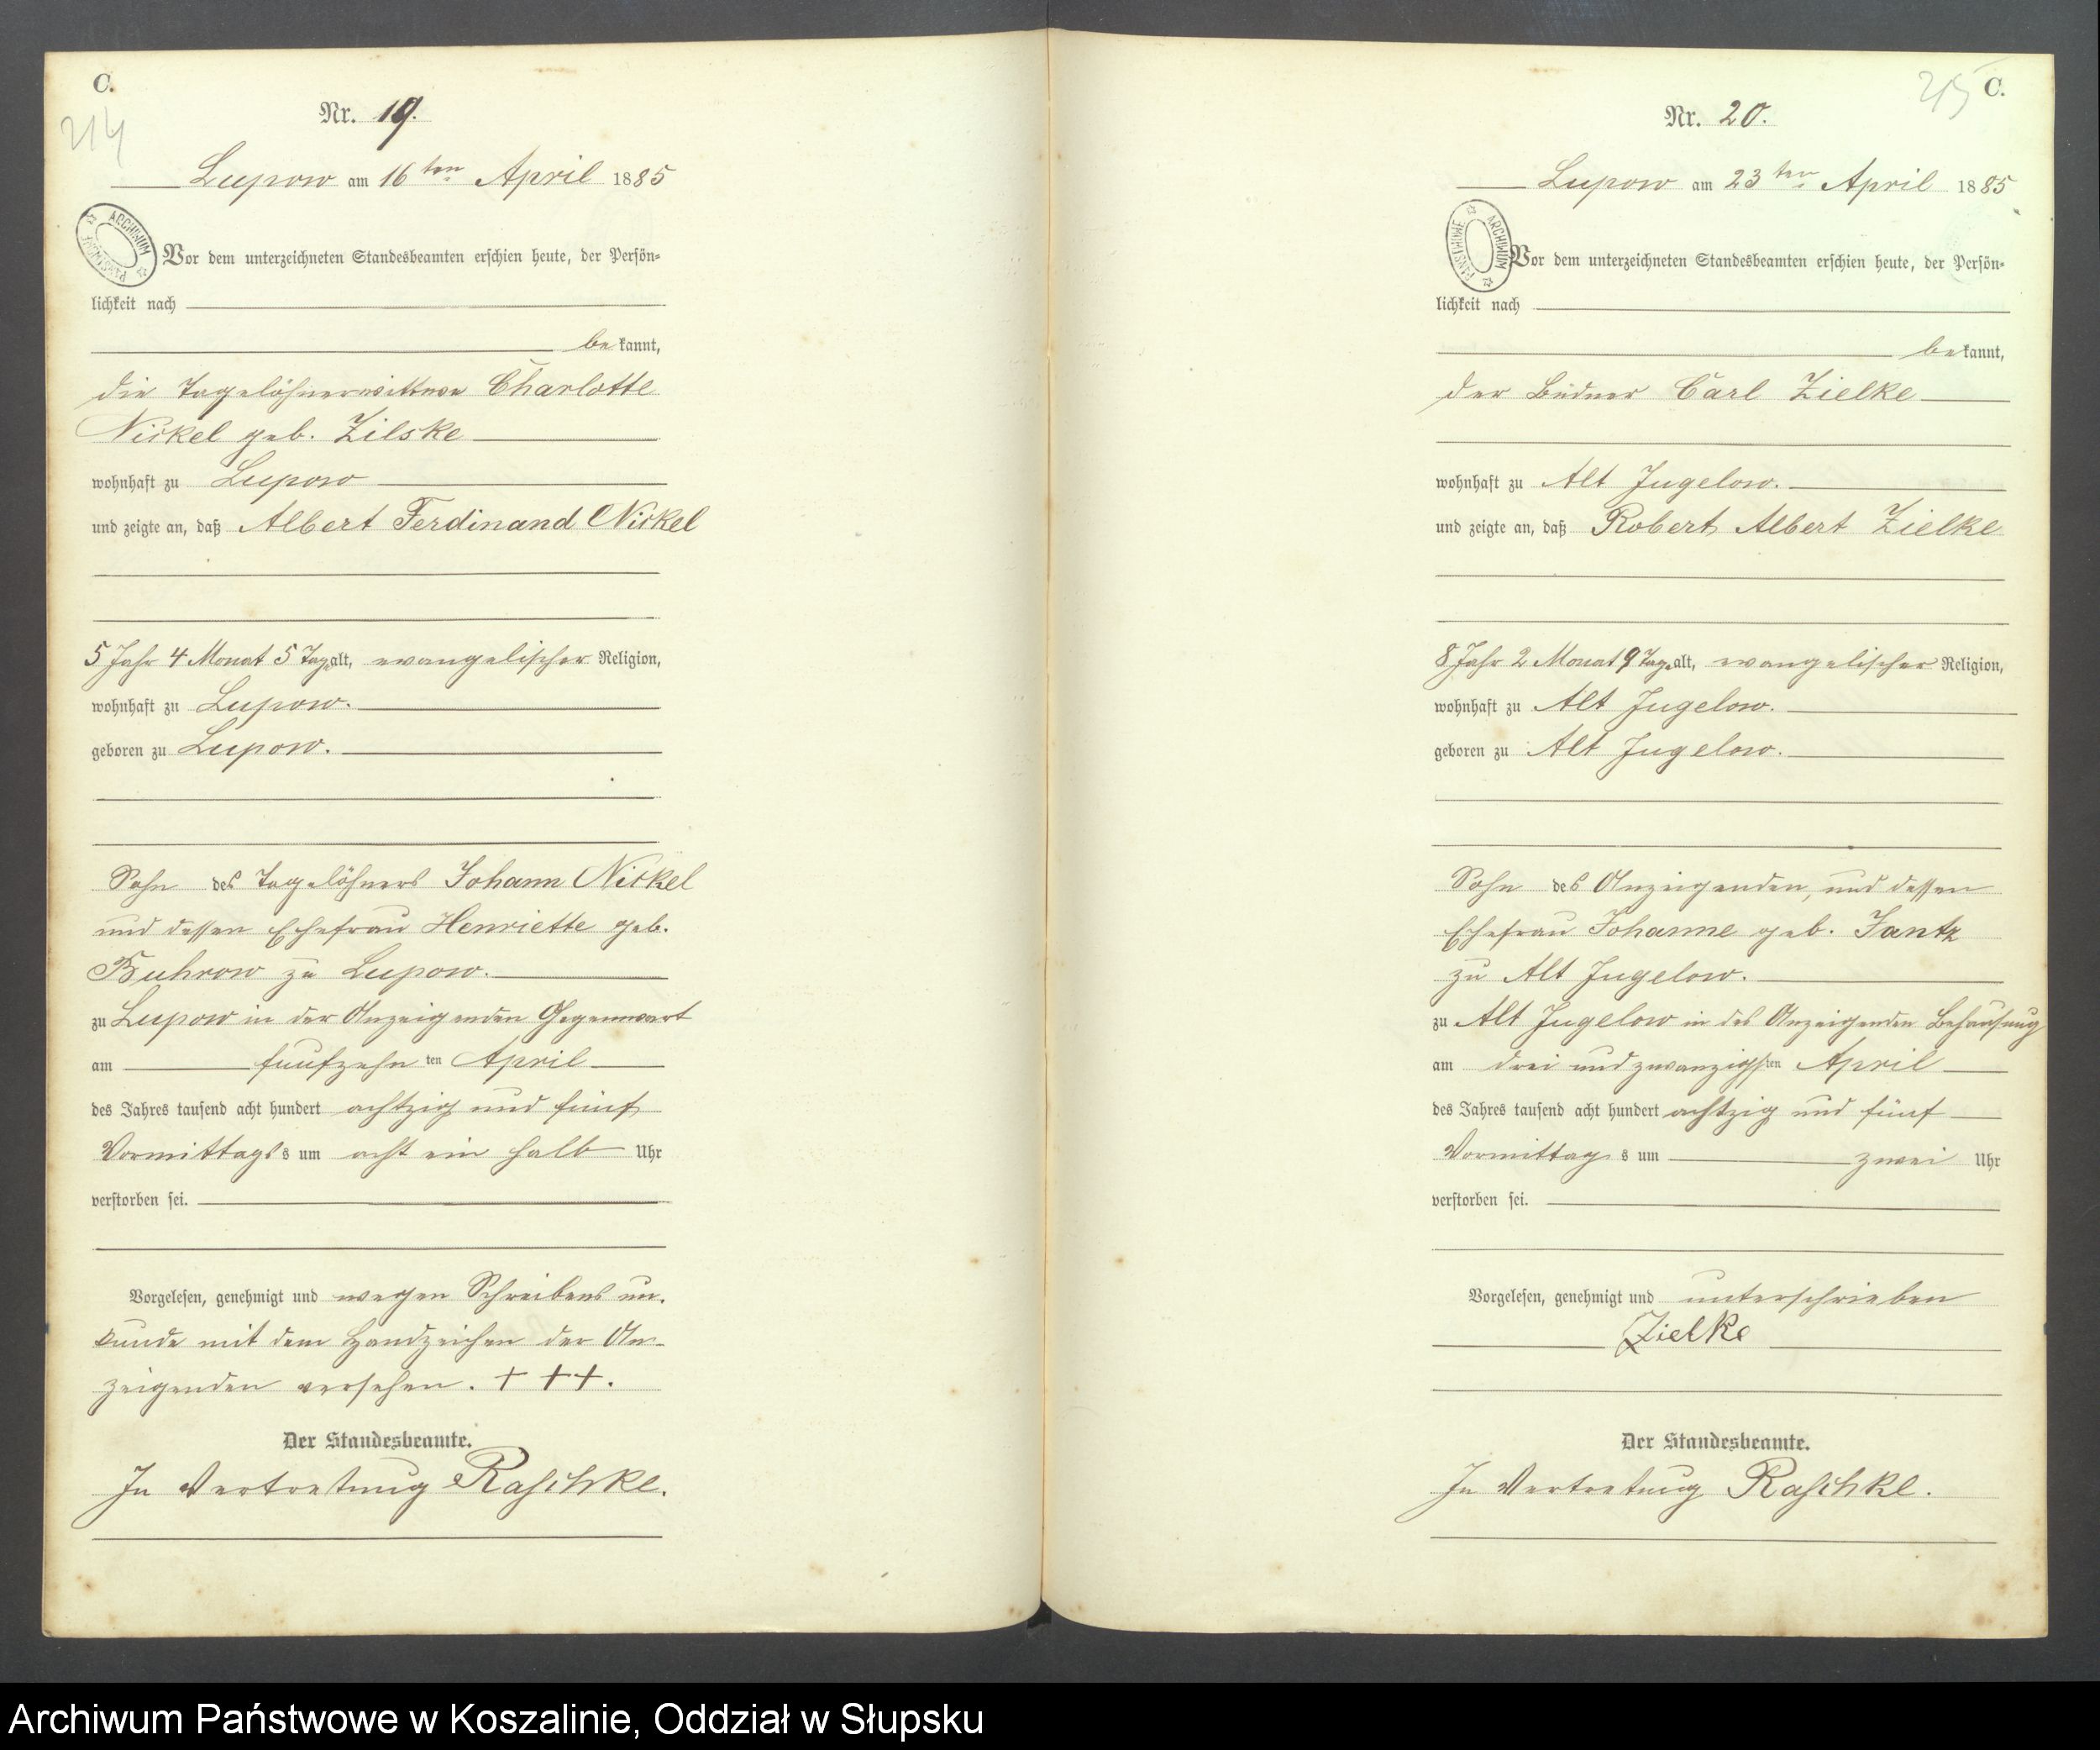 C.
214
Nr. 19.
Lupow am 16ten April 1885
ARCHIWUM PAŃSTWOWE
Vor dem unterzeichneten Standesbeamten erschien heute, der Persön-
lichkeit nach
bekannt,
die Tagelöhnerwittwe Charlotte
Nickel geb. Zilske
wohnhaft zu Lupow
und zeigte an, daß Albert Ferdinand Nickel
5 Jahr 4 Monat 5 Tage alt, evangelischer Religion,
wohnhaft zu Lupow.
geboren zu Lupow.
Sohn des Tagelöhners Johann Nickel
und dessen Ehefrau Henriette geb.
Buhrow zu Lupow.
zu Lupow in der Anzeigenden Gegenwart
am fünfzehnten April
des Jahres tausend acht hundert achtzig und fünf
Vormittags s um acht ein halb Uhr
verstorben sei.
Vorgelesen, genehmigt und wegen Schreibens un-
kunde mit dem Handzeichen der An-
zeigenden versehen. + + +.
Der Standesbeamte.
In Vertretung Raschke.
215
C.
Nr. 20.
Lupow am 23ten April 1885
ARCHIWUM PAŃSTWOWE
Vor dem unterzeichneten Standesbeamten erschien heute, der Persön-
lichkeit nach
bekannt,
der Büdner Carl Zielke
wohnhaft zu Alt Jugelow.
und zeigte an, daß Robert Albert Zielke
8 Jahr 2 Monat 9 Tage alt, evangelischer Religion,
wohnhaft zu Alt Jugelow.
geboren zu Alt Jugelow.
Sohn des Anzeigenden, und dessen
Ehefrau Johanne geb. Jantz
zu Alt Jugelow.
zu Alt Jugelow in des Anzeigenden Behausung
am drei und zwanzigsten April
des Jahres tausend acht hundert achtzig und fünf
Vormittags um zwei Uhr
verstorben sei.
Vorgelesen, genehmigt und unterschrieben
Zielke
Der Standesbeamte.
In Vertretung Raschke.
Archiwum Państwowe w Koszalinie, Oddział w Słupsku